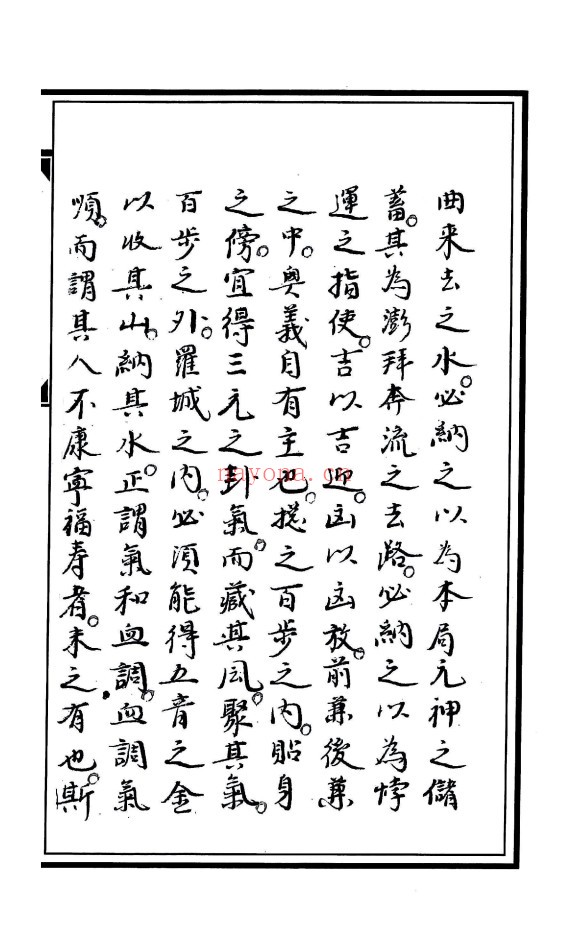 曲来去之水。必納之以為本局元神之儲
蓄。其為澎拜奔流之去路。必納之以為悖
運之指使。吉以吉迎。凶以凶放。前兼後兼
之中。奧義自有主也。摠之百步之内。貼身
之傍。宜得三元之卦氣。而藏其风。聚其氣。
百步之外。羅城之内。必須能得五音之金
以收其山。納其水。正謂氣和血調。血調氣
順。而謂其人不康寧福寿者。未之有也。斯
nayona.cn